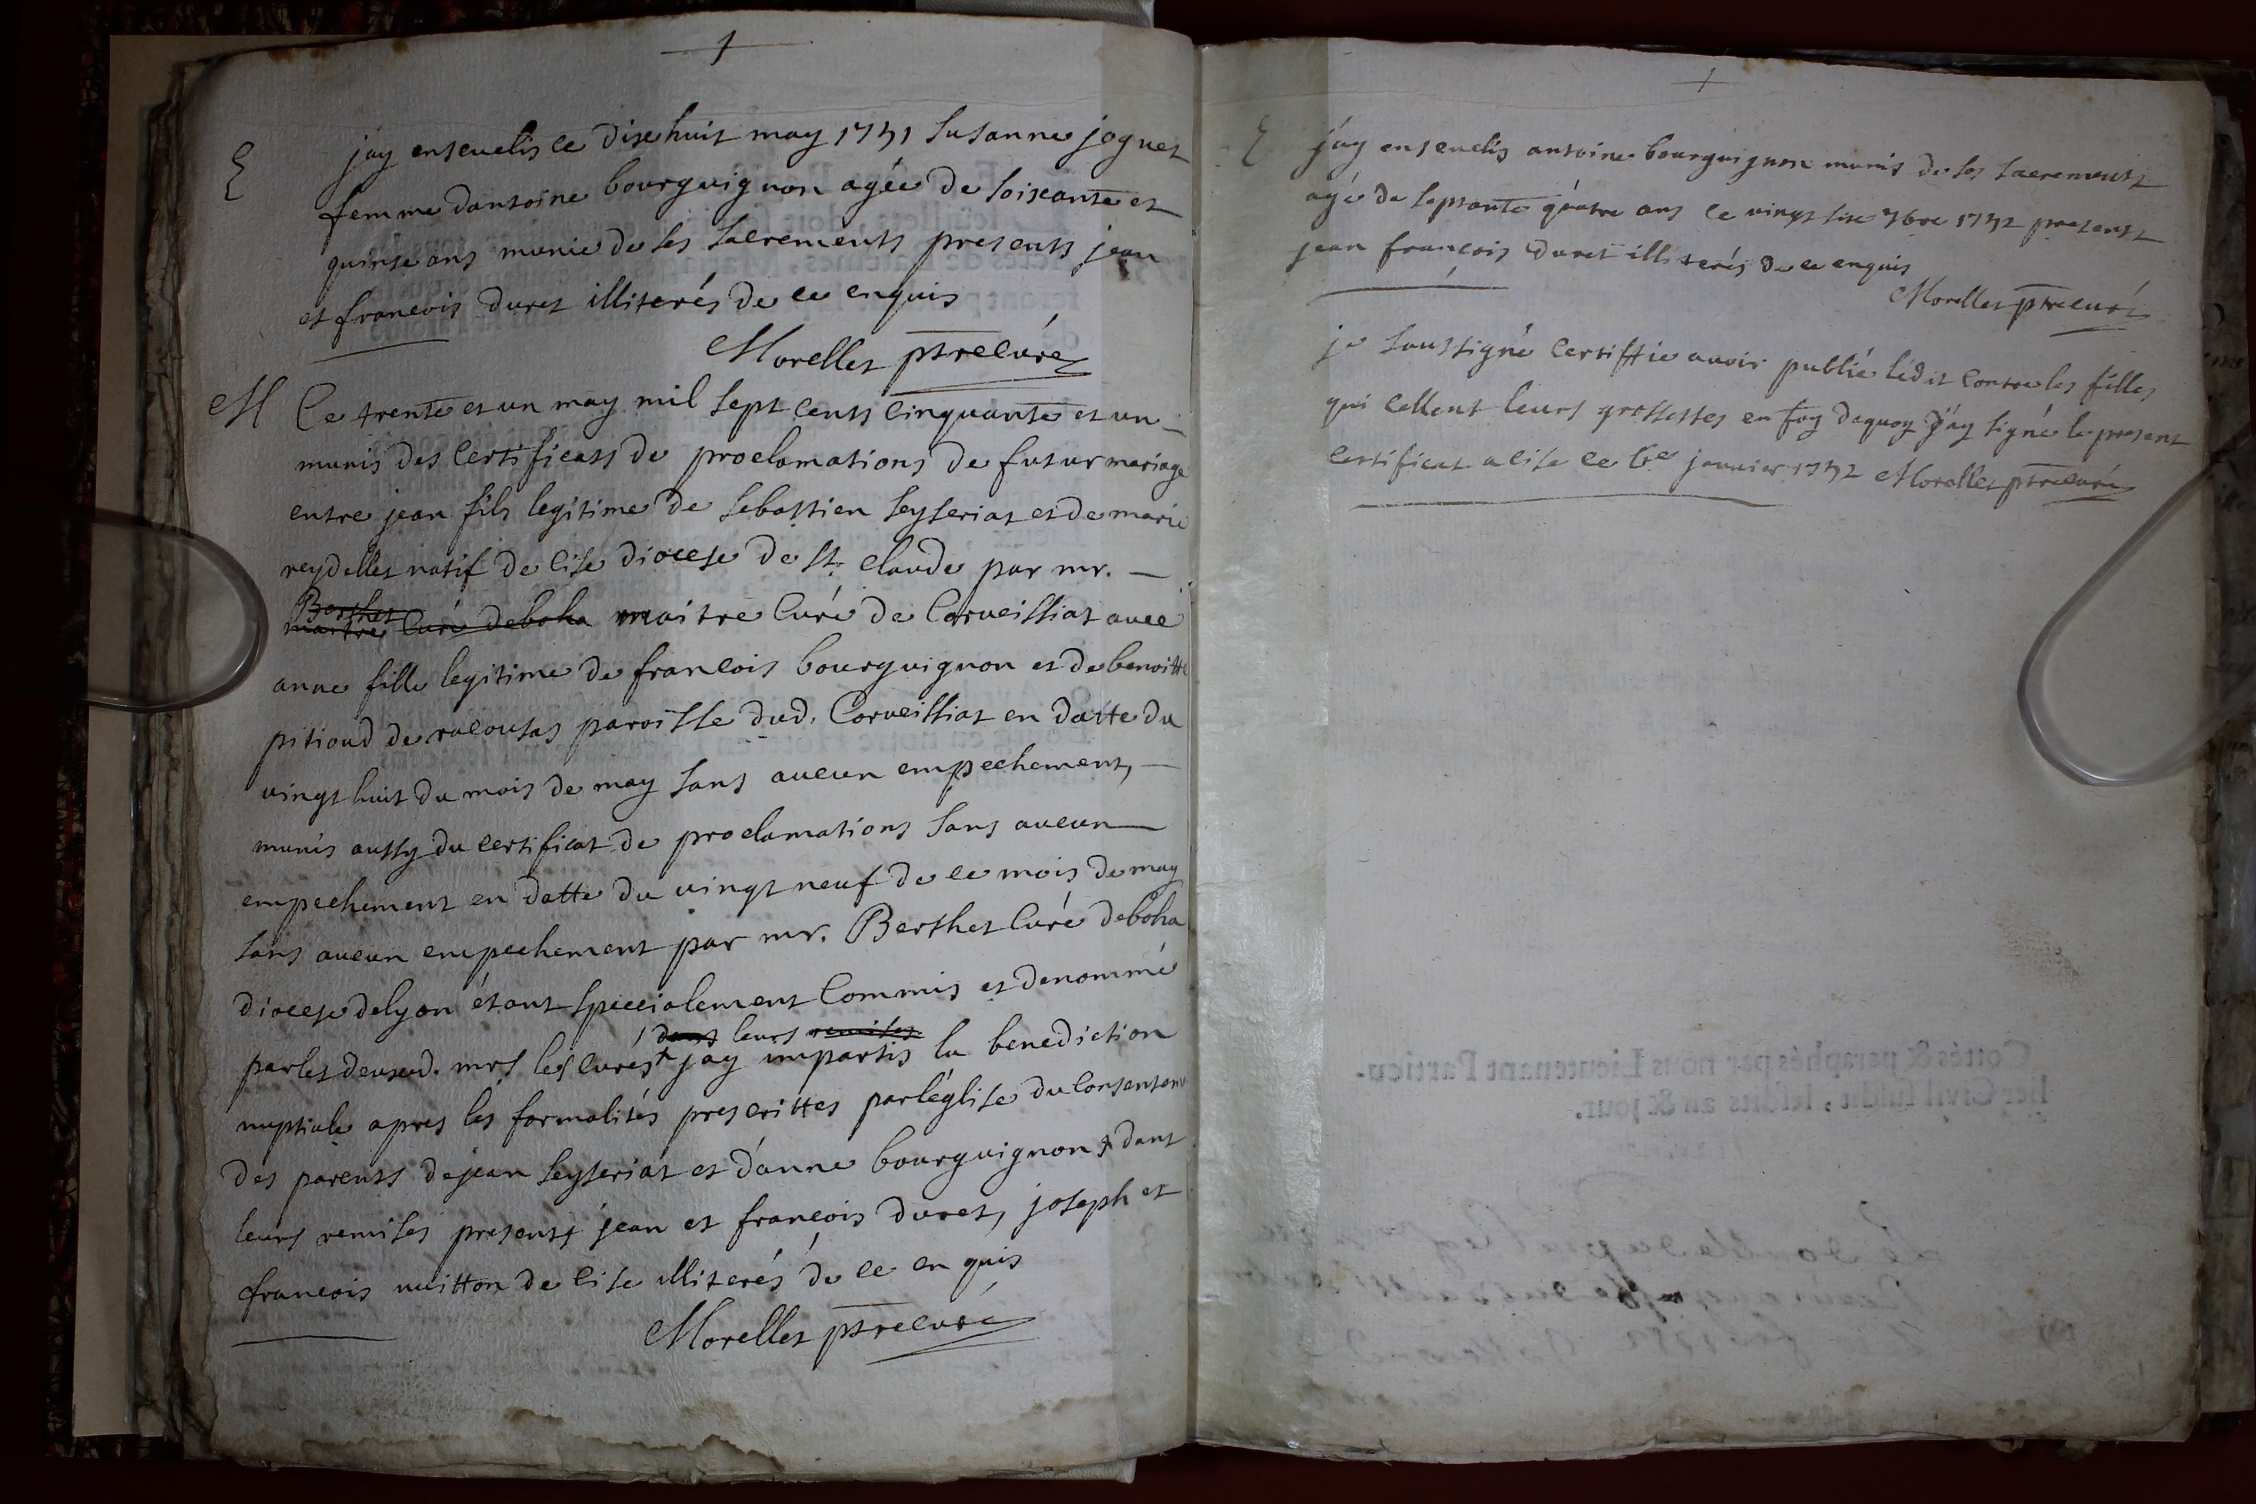 E jay enseuelis ce dixehuit may 1751 Susanne joguet
femme dantoine bourguignon agée de soixante et
quinse ans munie de ses sacrements presents jean
et francois duret illiterés de ce enquis
Morellet ptre curé
M Ce trente et un may mil sept cents cinquante et un
munis des certificats de proclamations de futur mariage
entre jean fils legitime de sebastien seyseriat et de marie
reydellet natif de cise diocese de st. claude par mr.
Berthet
maitre Curé deboha maitre Curé de Corveissiat avec
anne fille legitime de francois bourguignon et de benoitte
pitioud de racousas paroisse dud. Corveissiat en datte du
vingt huit du mois de may sans aucun empechement,
munis aussy du certificat de proclamations sans aucun
empechement en datte du vingt neuf de ce mois de may
sans aucun empechement par mr. Berthet Curé deboha
diocese delyon étant specialement Commis et denommé
dans leurs remises
par les deuxd. mrs les curés jay impartis la benediction
nuptiale apres les formalités prescrittes parléglise du Consentem
des parents dejean seyseriat et d'anne bourguignon dant
leurs remises presents jean et francois duret, joseph et
francois vuitton de cise illiterés de ce en quis
Morellet ptre curé
E j'ay enseuelis antoine bourguignon munis de ses sacrements
agé de septante quatre ans le vingt sixe 7bre 1751 presents
jean francois duret illiterés de ce enquis
Morellet ptre curé
je soussigné certiffie avoir publié lédit contre les filles
qui cellent leurs grossesses en foy dequoy j'ay signé le present
certificat a cise ce 6e janvier 1752 Morellet ptre curé